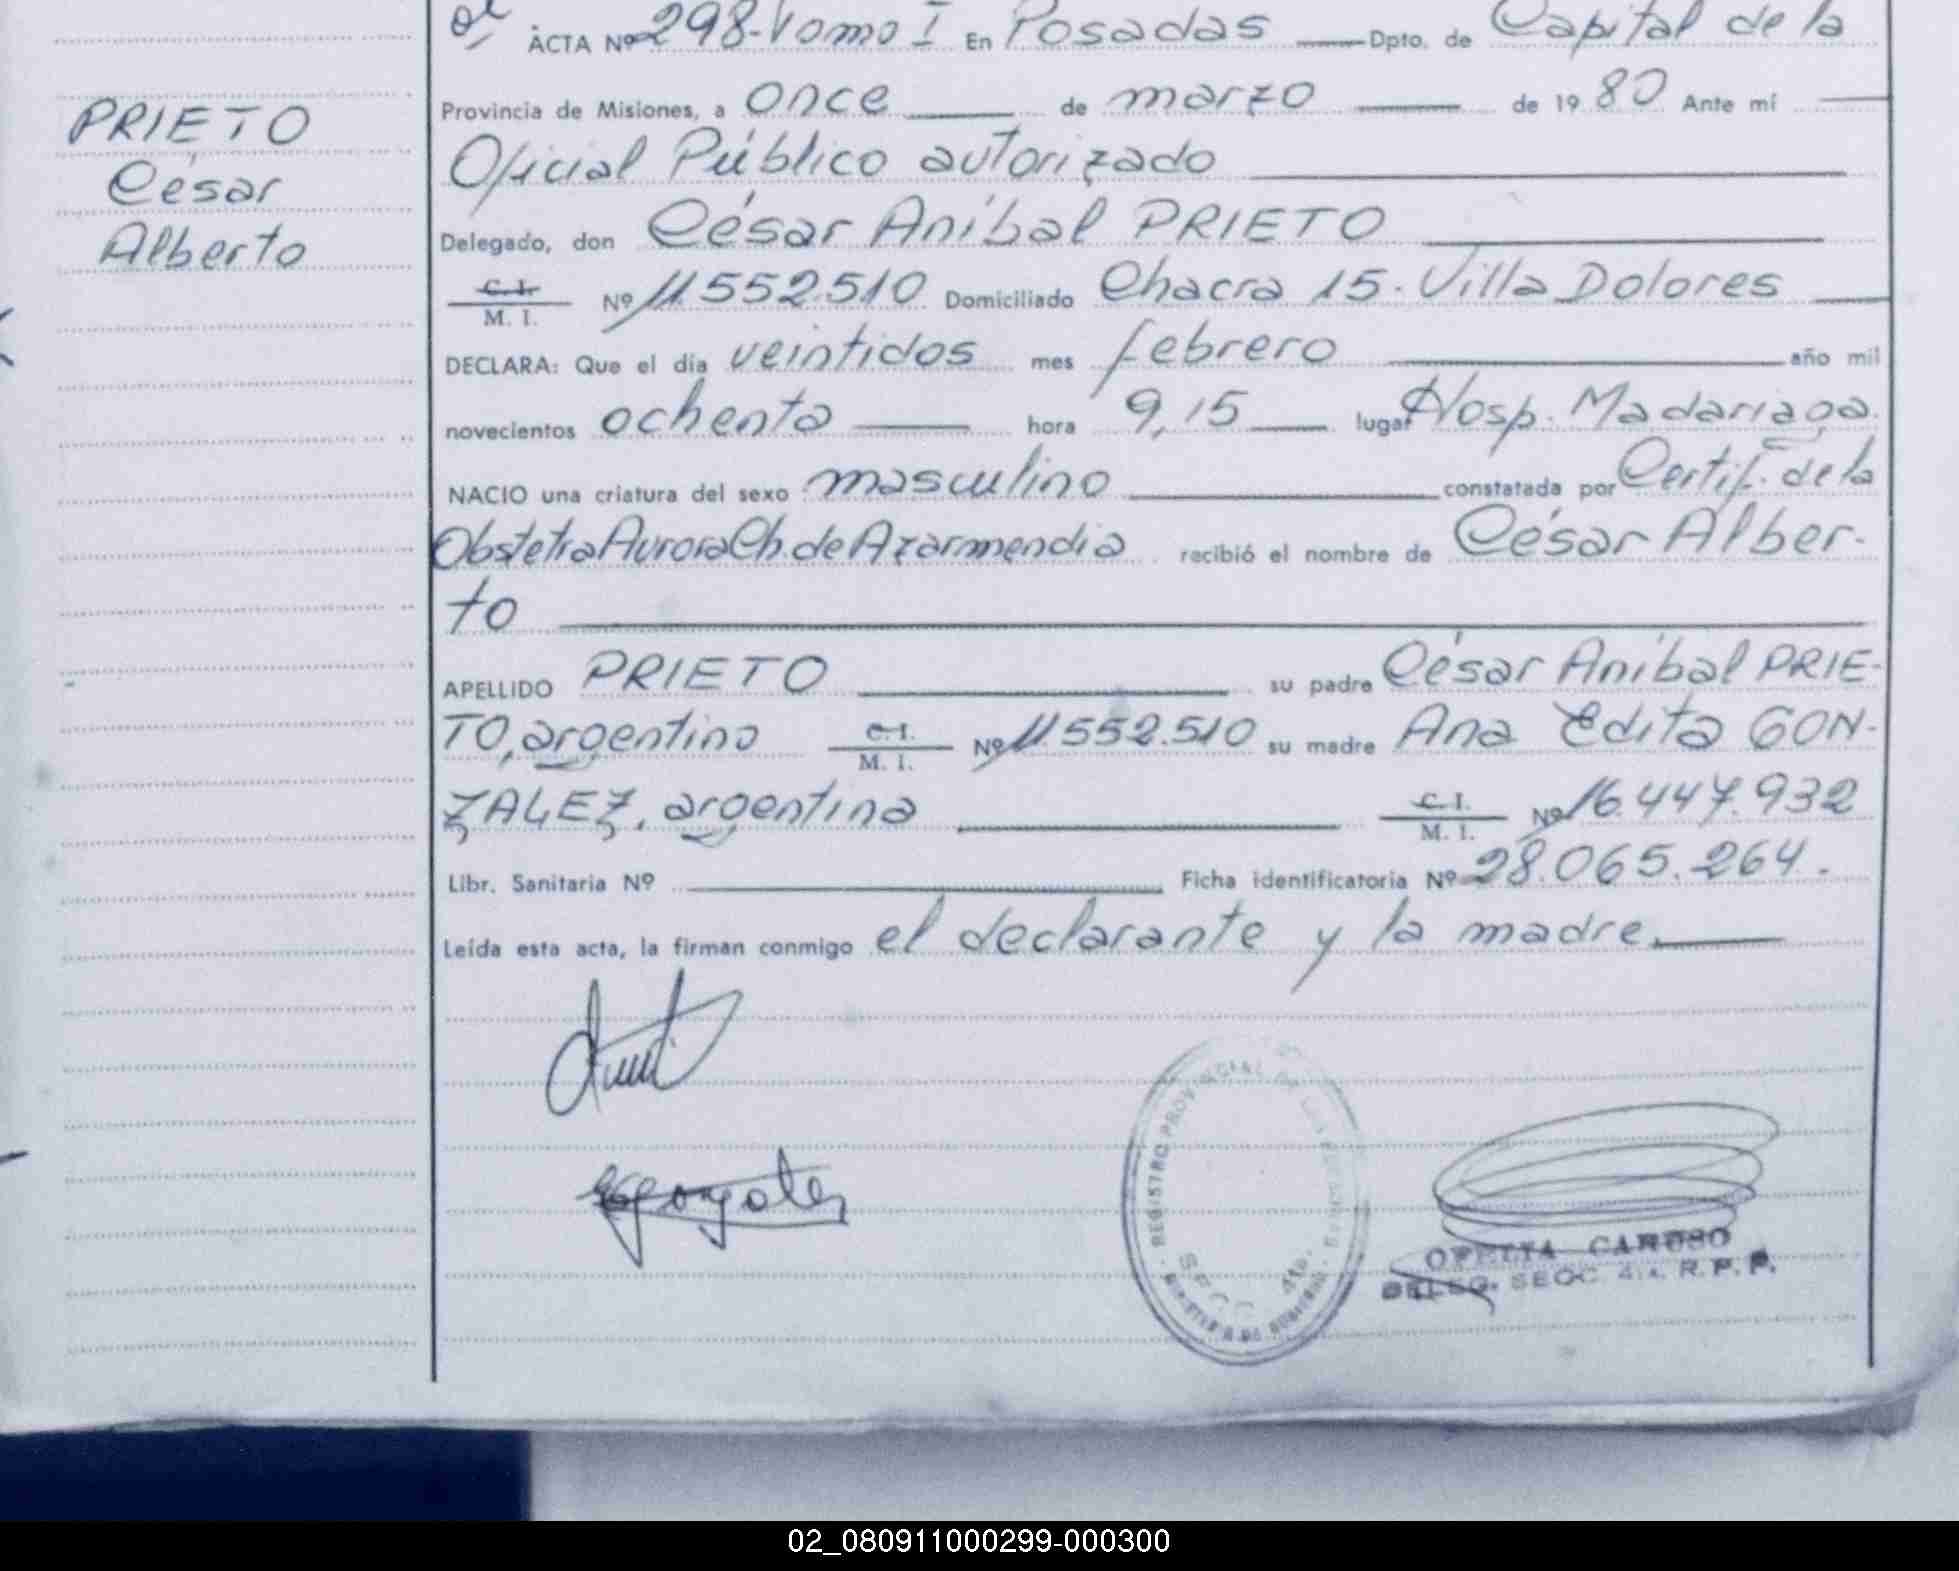 ACTA Nº 298-Tomo I En Posadas Dpto. de Capital de la
Provincia de Misiones, a once de marzo de 1980 Ante mí
Oficial Público autorizado
PRIETO
César
Alberto
Delegado, don César Aníbal PRIETO
C. I.
M. I. Nº 11.552.510 Domiciliado Chacra 15. Villa Dolores
DECLARA: Que el día veintidos mes febrero año mil
novecientos ochenta hora 9,15 lugar Hosp. Madariaga.
NACIO una criatura del sexo masculino constatada por Certif. de la
Obstetra Aurora Ch. de Azarmendia recibió el nombre de César Alber-
to
APELLIDO PRIETO su padre César Aníbal PRIE-
TO, argentino C. I. M. I. Nº 11.552.510 su madre Ana Edita GON-
ZALEZ, argentina C. I. M. I. Nº 16.447.932
Libr. Sanitaria Nº Ficha identificatoria Nº 28.065.264.
Leída esta acta, la firman conmigo el declarante y la madre.
REGISTRO PROVINCIAL DE LAS PERSONAS
SECC. 4ta.
MINISTERIO DE GOBIERNO
OFELIA CARUSO
DELEG. SECC. 4ta. R. P. P.
02_080911000299-000300